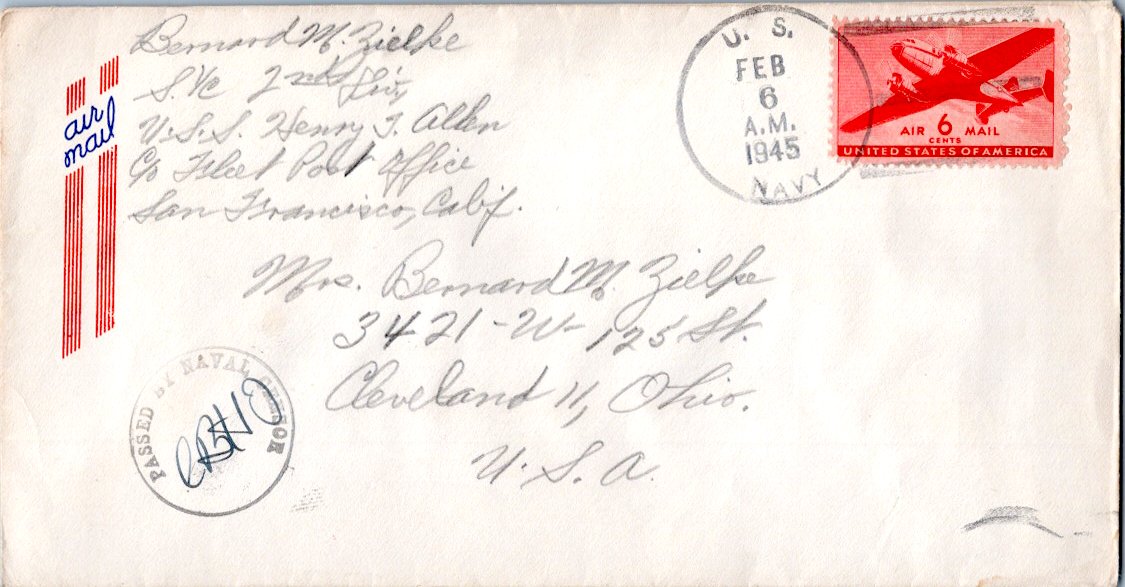 Bernard M. Zielke
S. 1/c 2nd Div.
U.S.S. Henry T. Allen
c/o Fleet Post Office
San Francisco, Calif.
air
mail
U. S.
FEB
6
A.M.
1945
NAVY
AIR 6 MAIL
CENTS
UNITED STATES OF AMERICA
Mrs. Bernard M. Zielke
3421 - W - 125 St.
Cleveland 11, Ohio.
U. S. A.
PASSED BY NAVAL CENSOR